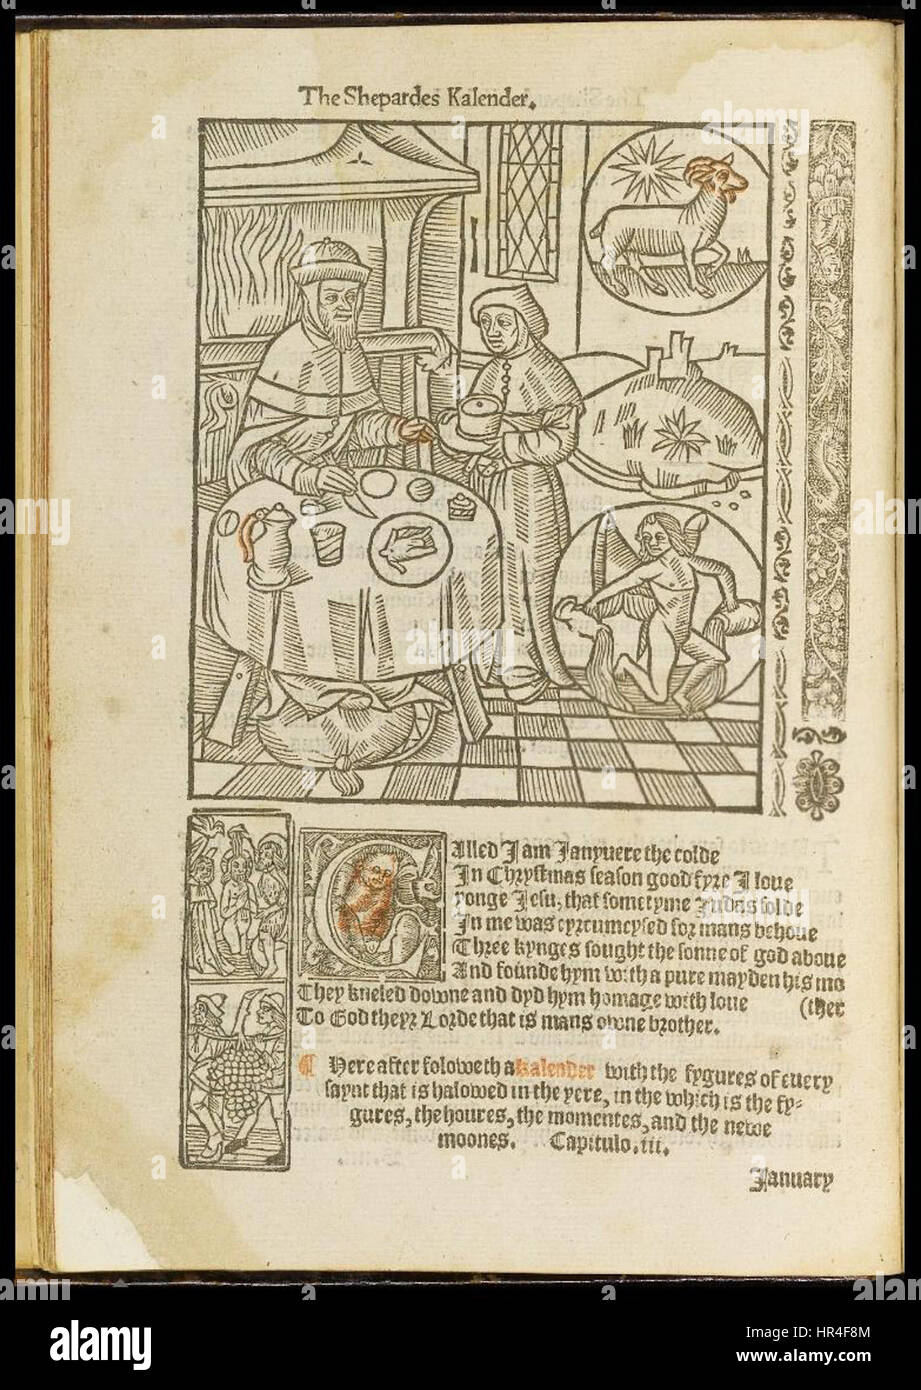 The Shepardes Kalender.
Alled I am Janyuere the colde
In Chrystmas season good fyre I loue
yonge Jesu, that sometyme Judas solde
In me was cyrcumcysed for mans behoue
Three kynges sought the sonne of god aboue
And founde hym with a pure mayden his mo
They kneled downe and dyd hym homage with loue (ther
To God theyr Lorde that is mans owne brother.
¶ Here after foloweth a kalender with the fygures of euery
saynt that is halowed in the yere, in the which is the fy-
gures, the houres, the momentes, and the newe
moones. Capitulo.iii.
January
alamy
Image ID: HR4F8M
www.alamy.com